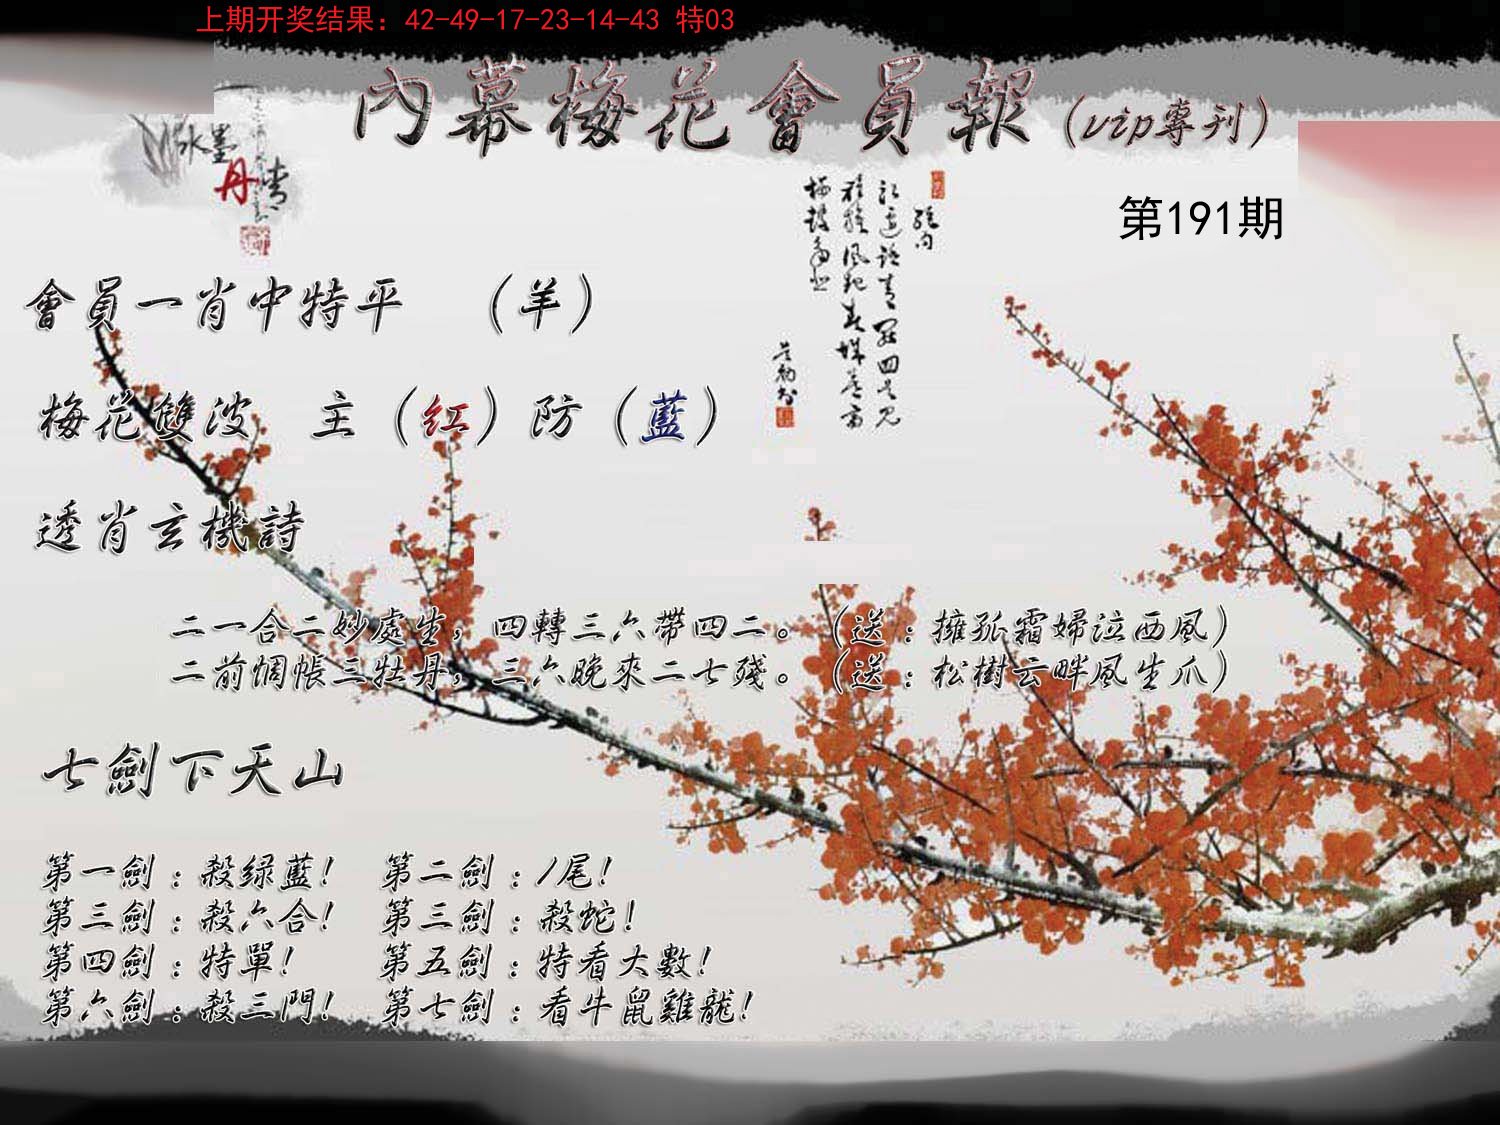 上期开奖结果：42-49-17-23-14-43 特03
內幕梅花會員報（vip專刊）
水墨
丹青
第191期
會員一肖中特平 （羊）
梅花雙波 主（红）防（藍）
透肖玄機詩
二一合二妙處生，四轉三六帶四二。（送：擁孤霜婦泣西風）
二前惆帳三牡丹，三六晚來二七殘。（送：松樹云畔風生爪）
七劍下天山
第一劍：殺绿藍！ 第二劍：1尾！
第三劍：殺六合！ 第三劍：殺蛇！
第四劍：特單！ 第五劍：特看大數！
第六劍：殺三門！ 第七劍：看牛鼠雞龍！